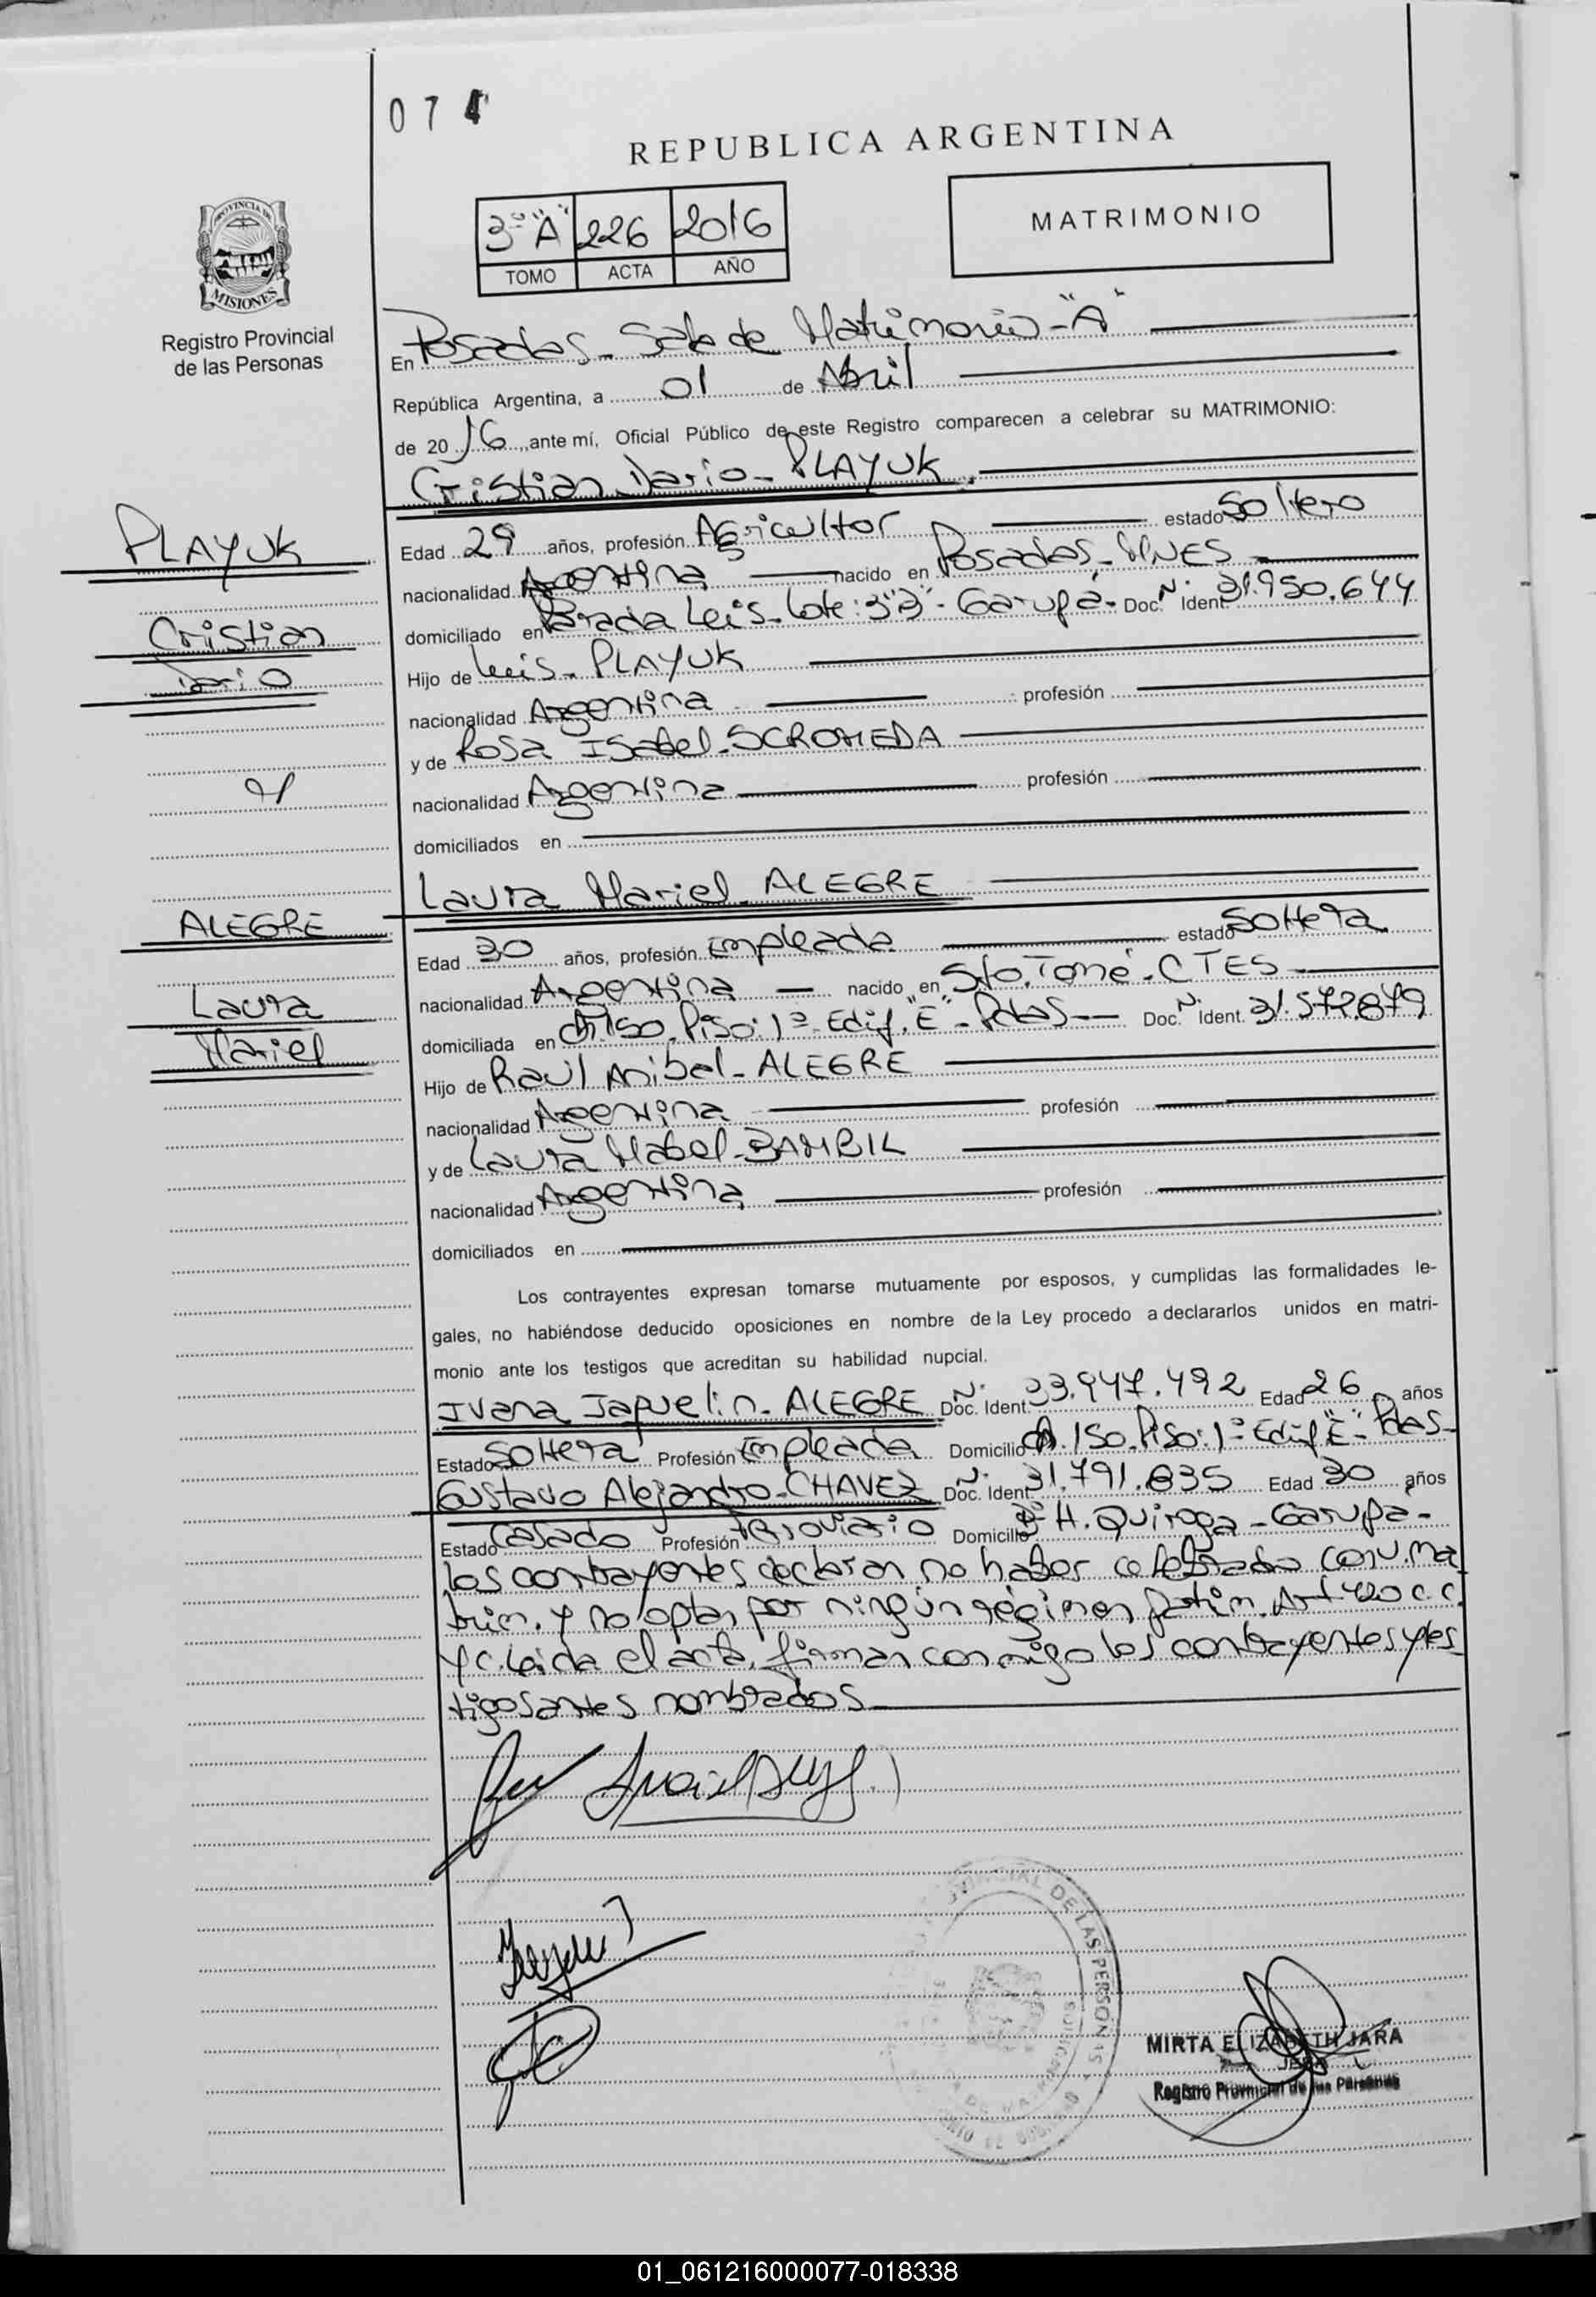 074
REPUBLICA ARGENTINA
3º "A" 226 2016
TOMO ACTA AÑO
MATRIMONIO
PROVINCIA DE
MISIONES
Registro Provincial
de las Personas
En Posadas - Sala de Matrimonios - "A"
República Argentina, a 01 de Abril
de 2016, ante mí, Oficial Público de este Registro comparecen a celebrar su MATRIMONIO:
Cristian Dario - PLAYUK
PLAYUK
Cristian
Dario
Y
ALEGRE
Laura
Mariel
Edad 29 años, profesión Agricultor estado Soltero
nacionalidad Argentina nacido en Posadas - MNES
domiciliado en Parada Leis - Lote: 3"3" - Garupá - Doc. Nº Ident. 31.950.644
Hijo de Luis - PLAYUK
nacionalidad Argentina profesión
y de Rosa Isabel - SCROMEDA
nacionalidad Argentina profesión
domiciliados en
Laura Mariel - ALEGRE
Edad 30 años, profesión Empleada estado Soltera
nacionalidad Argentina nacido en Sto. Tomé - CTES
domiciliada en 150 - Piso: 1º - Edif. "E" - Pdas Doc. Nº Ident. 31.572.879
Hijo de Raúl Anibal - ALEGRE
nacionalidad Argentina profesión
y de Laura Mabel - BAMBIL
nacionalidad Argentina profesión
domiciliados en
Los contrayentes expresan tomarse mutuamente por esposos, y cumplidas las formalidades le-
gales, no habiéndose deducido oposiciones en nombre de la Ley procedo a declararlos unidos en matri-
monio ante los testigos que acreditan su habilidad nupcial.
Ivana Jaquelin - ALEGRE Doc. Nº Ident. 33.947.492 Edad 26 años
Estado Soltera Profesión Empleada Domicilio 150 - Piso: 1º - Edif "E" - Pdas -
Gustavo Alejandro - CHAVEZ Doc. Nº Ident. 31.791.835 Edad 30 años
Estado Casado Profesión Ferroviario Domicilio H. Quiroga - Garupa -
Los contrayentes declaran no haber celebrado conv. ma
trim. y no optan por ningún régimen patrim. Art 420 c.c.
y c. Leida el acta, firman conmigo los contrayentes y tes
tigos antes nombrados
PROVINCIAL DE LAS PERSONAS
MIRTA ELIZABETH JARA
JEFA
Registro Provincial de las Personas
01_061216000077-018338